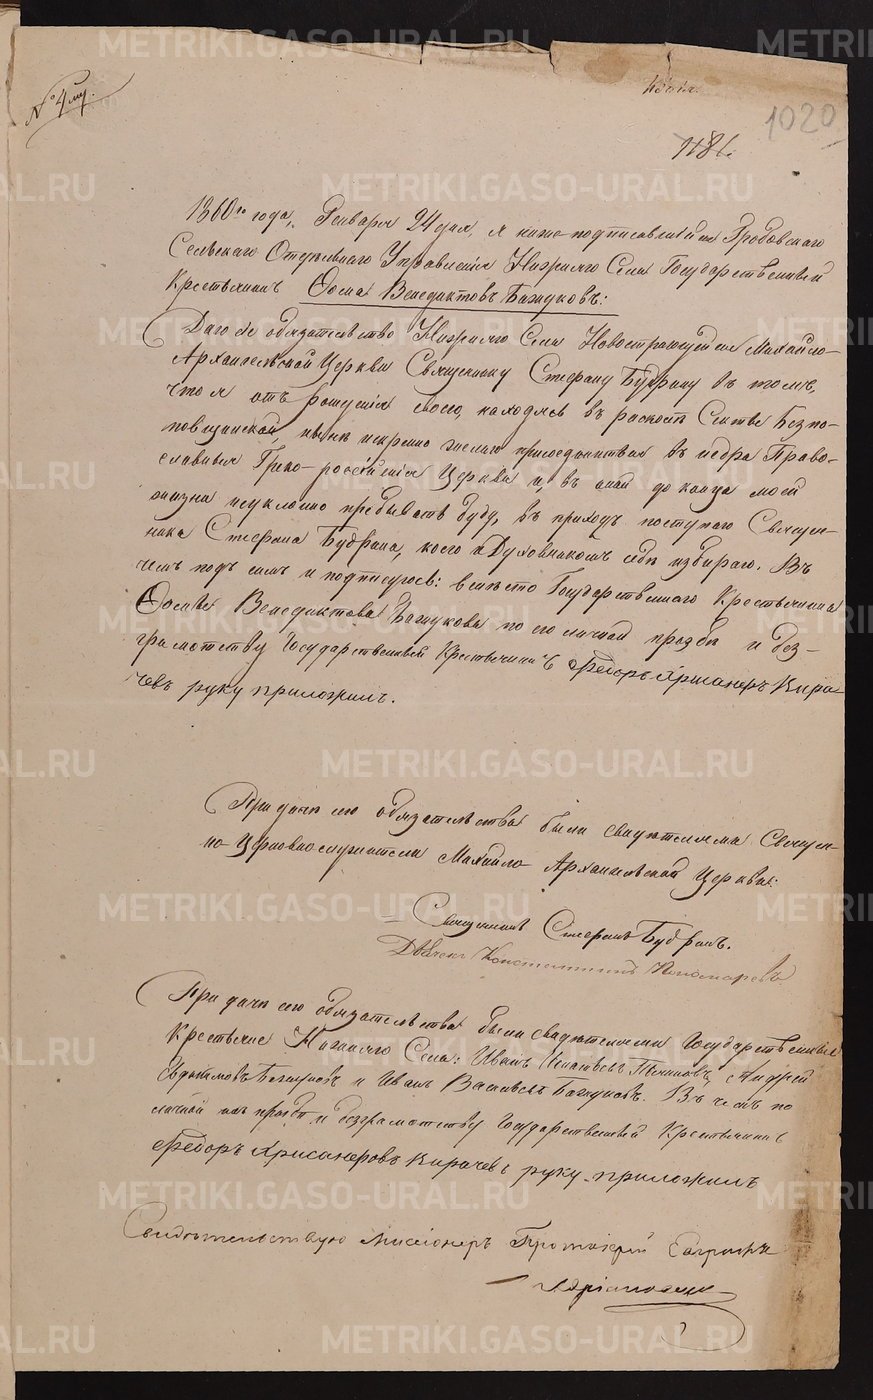 № 4й.
1020
1181.
1860го года, Января 24 дня, я ниже-подписавшийся Гробовскаго
Сельскаго Отдельнаго Управления Села Государственный
Крестьянинъ Ѳома Венедиктовъ Бажуковъ:
Даю обязательство Села Михайло-
Архангельской Церкви Священнику Стефану Будрину въ томъ,
что я отъ рождения моего, находясь въ расколѣ Секты Безпо-
повщинской, нынѣ искренно желаю присоединиться въ нѣдра Право-
славныя Греко-российския Церкви и, въ оной до конца моей
жизни неуклонно пребывать буду, въ приходъ поступаю Священ-
ника Стефана Будрина, коего и Духовникомъ себѣ избираю. Въ
чемъ подъ симъ и подписуюсь: вмѣсто Государственнаго Крестьянина
Ѳомы Венедиктова Бажукова по его личной прозбѣ и без-
грамотству Государственный Крестьянинъ Федоръ
руку приложилъ.
При дачѣ сего обязательства были свидѣтелями Священ-
но-Церковнослужители Михайло-Архангельской Церкви:
Священникъ Стефанъ Будринъ.
Дьячекъ Константинъ Пономаревъ
При дачѣ сего обязательства были свидѣтелями Государственныя
Крестьяне Села: Иванъ Андрей
Евдокимовъ Бажуковъ и Иванъ Васильевъ Бажуковъ. Въ чемъ по
личной ихъ прозбѣ и безграмотству Государственный Крестьянинъ
Федоръ руку приложилъ
Свидѣтельствую Миссіонеръ Протоіерей